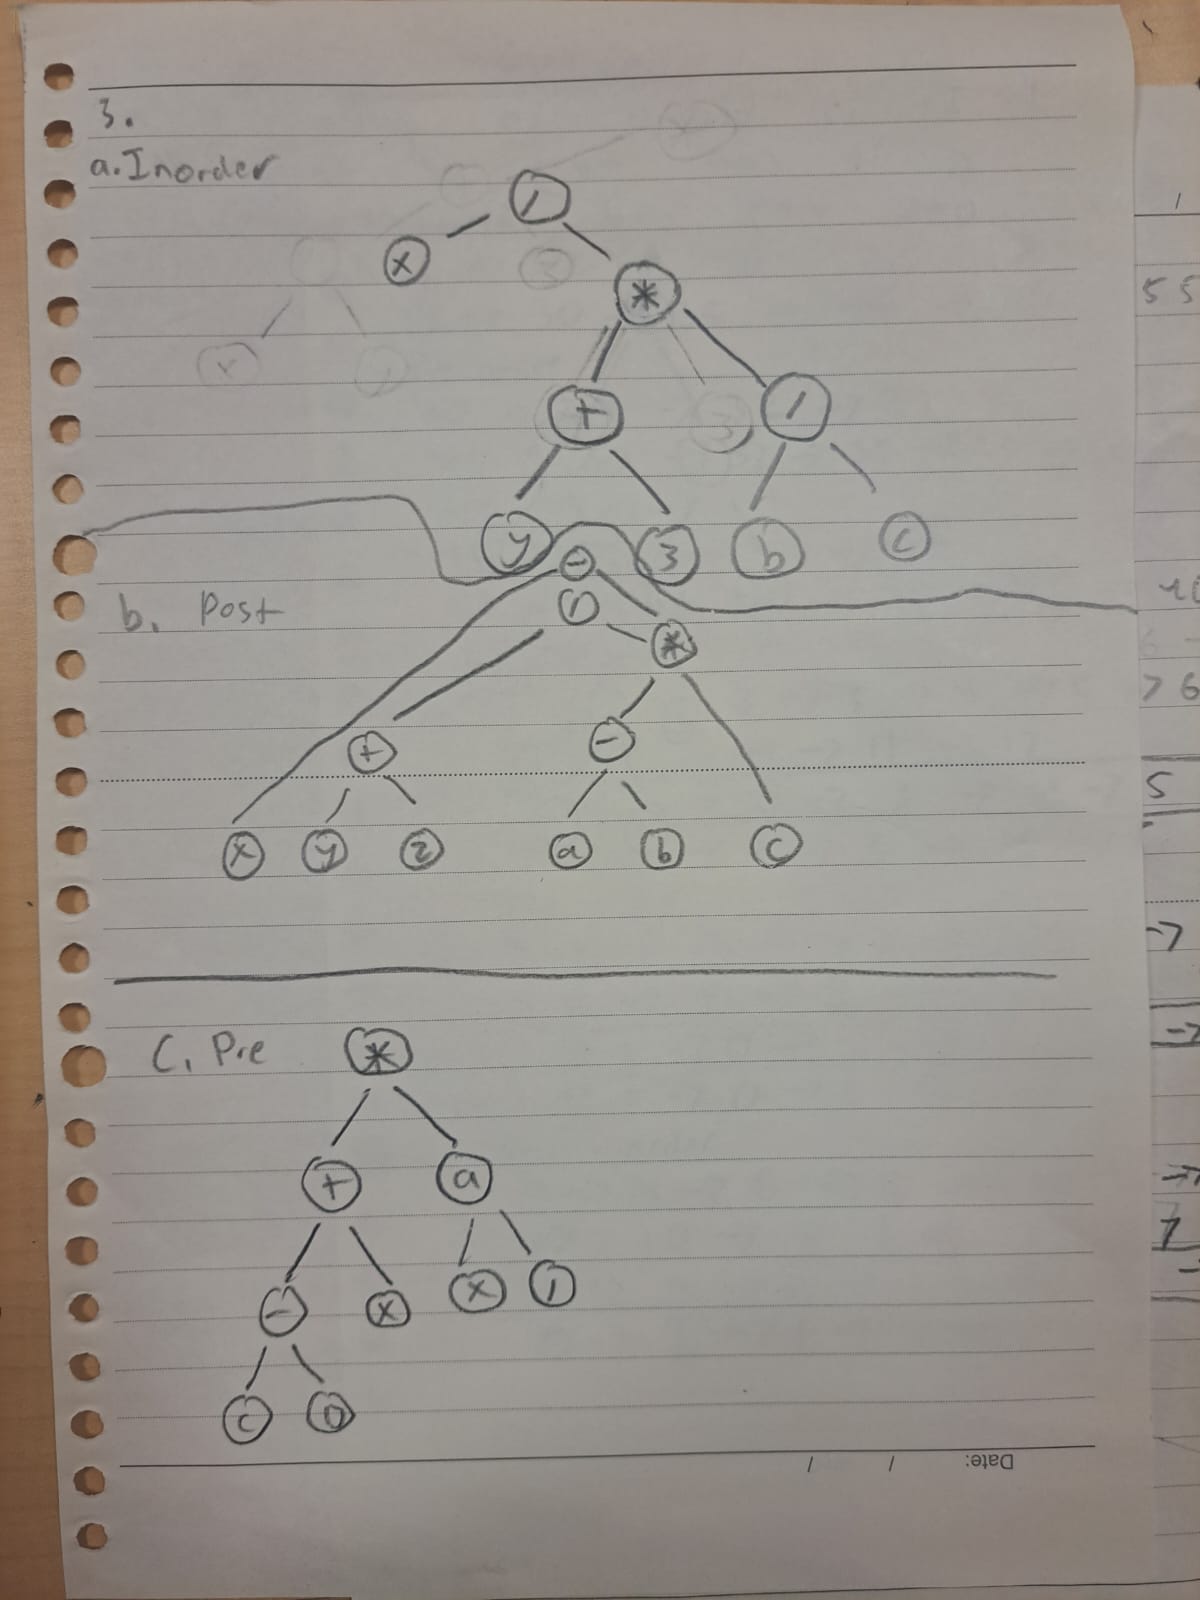 3.
a. Inorder
/
x
*
+ /
y 3 b c
b. Post
-
/
*
+ -
x y z a b c
C. Pre *
+ a
- x x /
c
Date: / /
5 5
7 6
5
-7
7